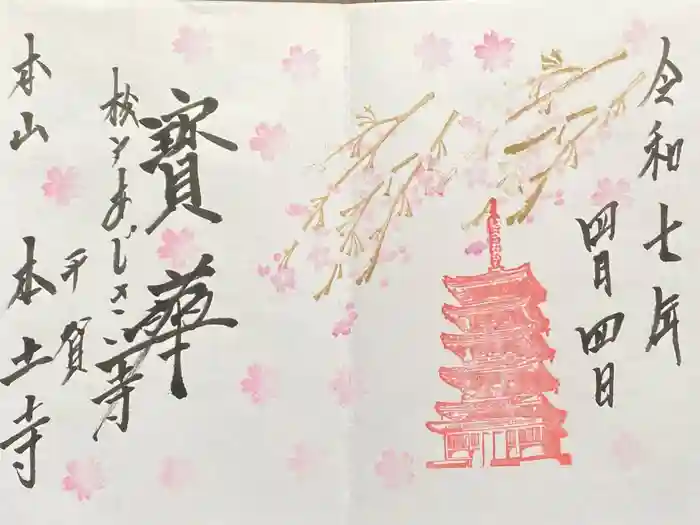 令和七年
四月四日
寳華
桜とあじさい寺
本山
平賀
本土寺